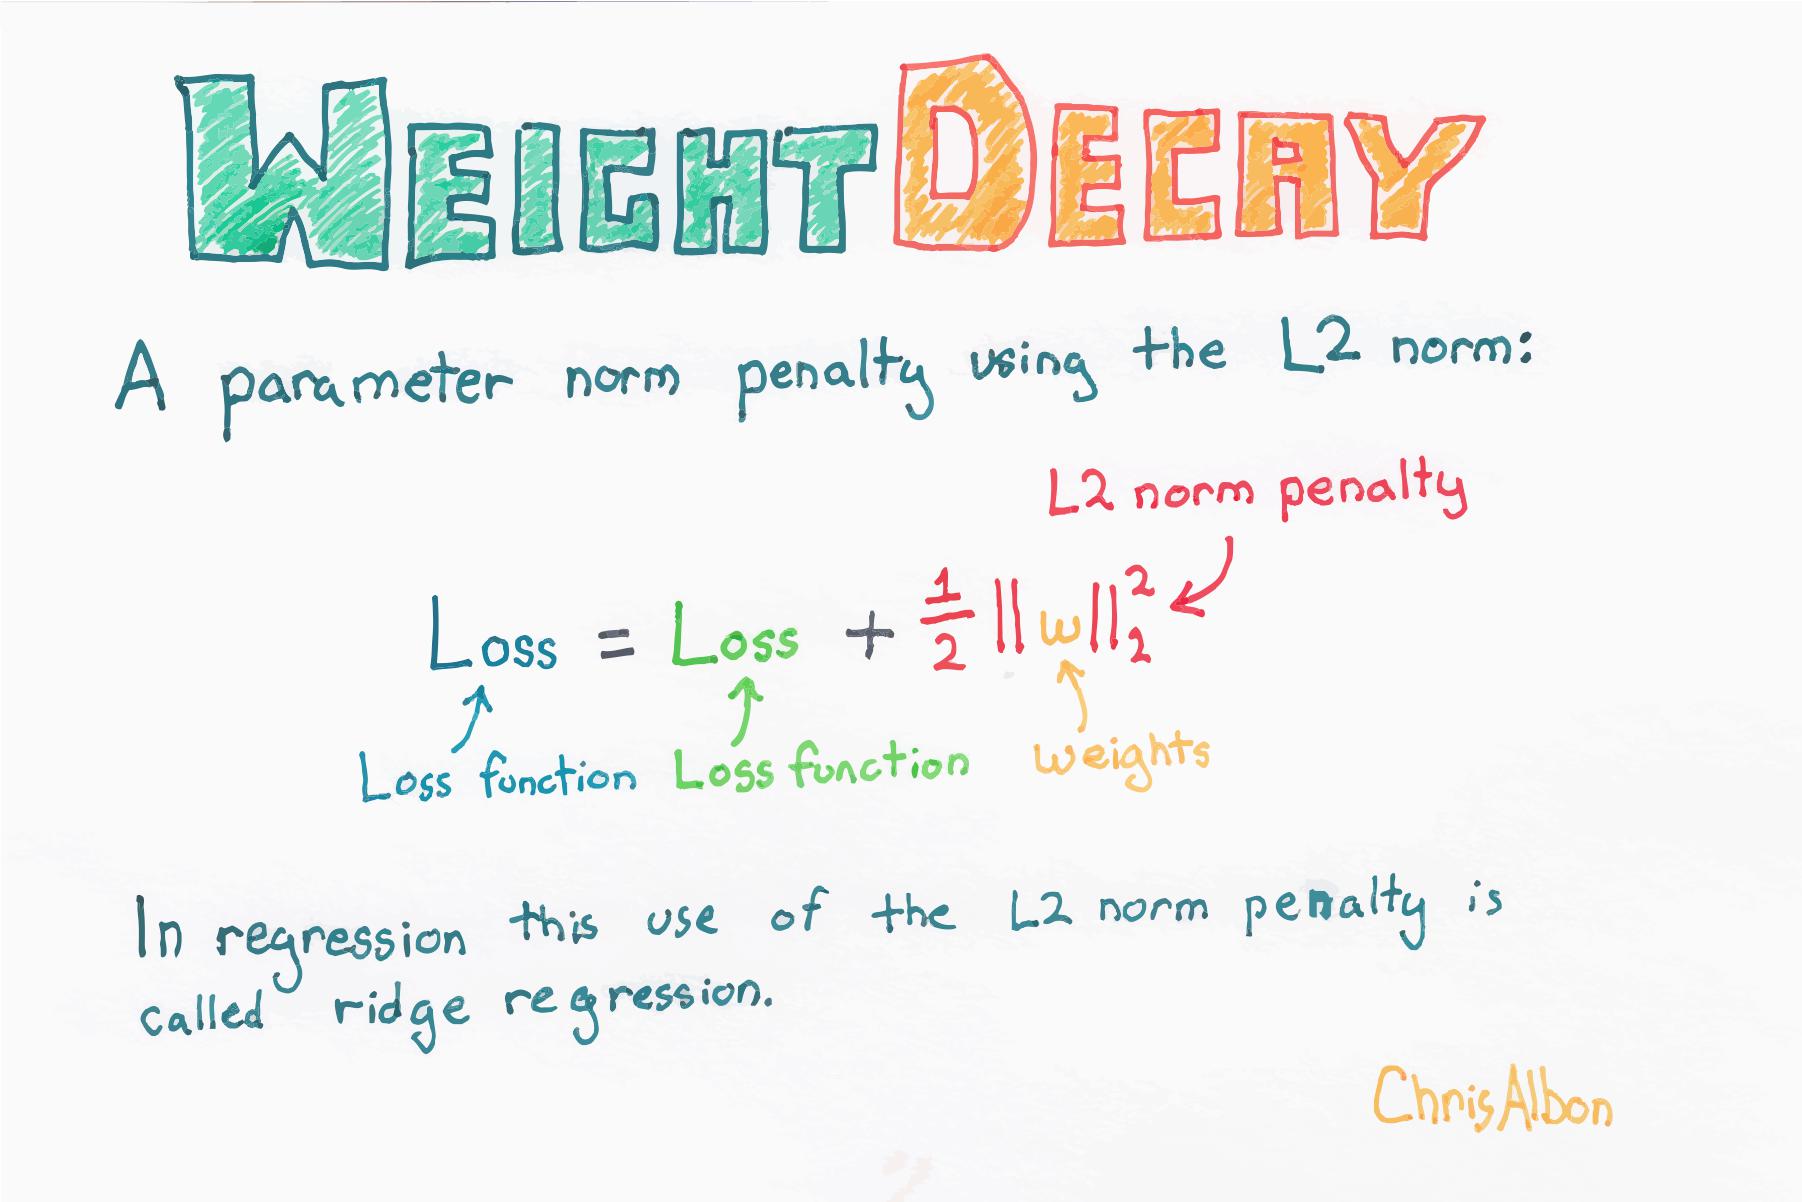 WEIGHT DECAY
A parameter norm penalty using the L2 norm:
L2 norm penalty
Loss = Loss + 1/2 ||w||₂²
Loss function Loss function weights
In regression this use of the L2 norm penalty is
called ridge regression.
ChrisAlbon